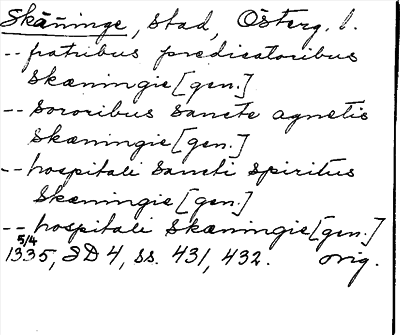 Skäninge, stad, Österg. l.
-- fratribus predicatoribus
Skæningie [gen.]
-- sororibus sancte agnetis
Skæningie [gen.]
-- hospitali sancti spiritus
Skæningie [gen.]
-- hospitali Skæningie [gen.]
5/4
1335, SD 4, ss. 431, 432. orig.